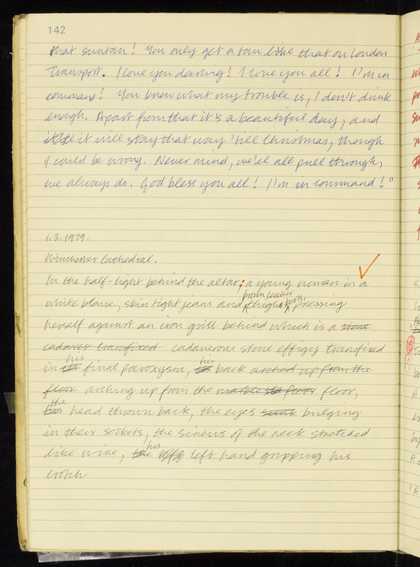 142
that suntan! You only get a tan like that on London
Transport. I love you darling! I love you all! I'm in
command! You know what my trouble is, I don't drink
enough. Apart from that it's a beautiful day, and
it will stay that way 'till Christmas, though
I could be wrong. Never mind, we'll all pull through,
we always do. God bless you all! I'm in command!"
1979.
Winchester Cathedral.
In the half-light behind the altar; a young woman in a
white blouse, skin tight jeans and thigh boots pressing
herself against an iron grill behind which is a stone
cadaver transfixed cadaverous stone effigy transfixed
in his final paroxysm, his back arched up from the
floor arching up from the floor,
the head thrown back, the eyes bulging
in their sockets, the sinews of the neck stretched
like wire, his left hand gripping his